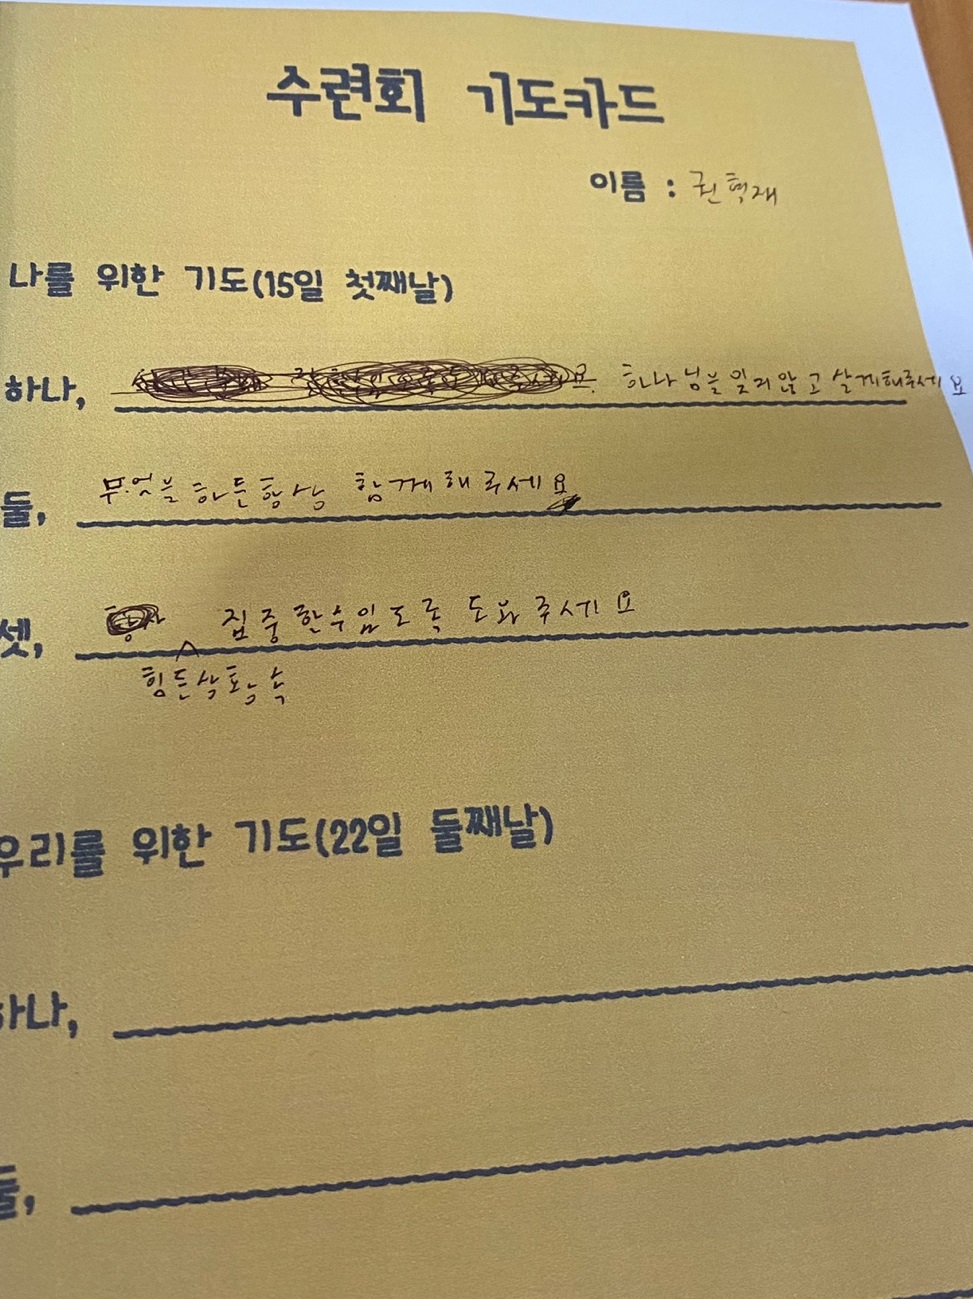 수련회 기도카드
이름 : 권혁재
나를 위한 기도(15일 첫째날)
하나, 하나님을 잊지않고 살게해주세요
둘, 무엇을 하든항상 함께해주세요
셋, 집중한수있도록 도와주세요
힘든상황속
우리를 위한 기도(22일 둘째날)
하나,
둘,